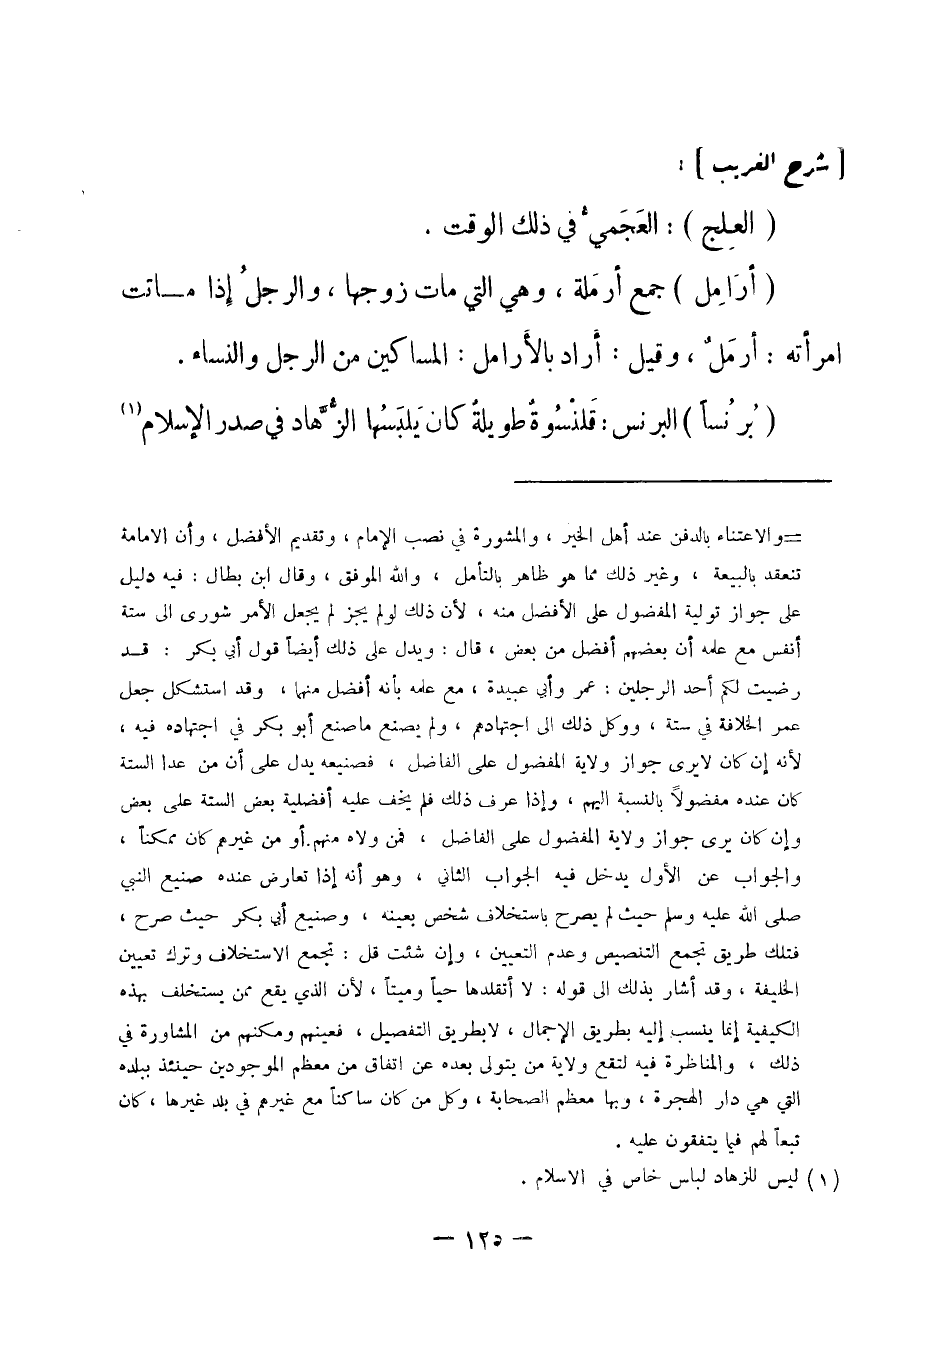 [ شرح الغريب ] :
( العِلج ) : العَجَميُّ في ذلك الوقت .
( أرَامِل ) جمع أرمَلة ، وهي التي مات زوجها ، والرجلُ إذا مـــاتت
امرأته : أرمَلٌ ، وقيل : أراد بالأَرامل : المساكين من الرجل والنساء .
( بُرنُساً ) البرنس : قَلنْسُوةٌ طويلةٌ كان يَلبَسُها الزُّهَّاد في صدر الإسلام (١)
=والاعتناء بالدفن عند أهل الخير ، والمشورة في نصب الإمام ، وتقديم الأفضل ، وأن الامامة
تنعقد بالبيعة ، وغير ذلك مما هو ظاهر بالتأمل ، والله الموفق ، وقال ابن بطال : فيه دليل
على جواز تولية المفضول على الأفضل منه ، لأن ذلك لولم يجز لم يجعل الأمر شورى الى ستة
أنفس مع علمه أن بعضهم أفضل من بعض ، قال : ويدل على ذلك أيضاً قول أبي بكر : قــد
رضيت لكم أحد الرجلين : عمر وأبي عبيدة ، مع علمه بأنه أفضل منها ، وقد استشكل جعل
عمر الخلافة في ستة ، ووكل ذلك الى اجتهادهم ، ولم يصنع ماصنع أبو بكر في اجتهاده فيه ،
لأنه إن كان لايرى جواز ولاية المفضول على الفاضل ، فصنيعه يدل على أن من عدا الستة
كان عنده مفضولاً بالنسبة اليهم ، وإذا عرف ذلك فلم يخف عليه أفضلية بعض الستة على بعض
وإن كان يرى جواز ولاية المفضول على الفاضل ، فمن ولاه منهم أو من غيرهم كان ممكناً ،
والجواب عن الأول يدخل فيه الجواب الثاني ، وهو أنه إذا تعارض عنده صنيع النبي
صلى الله عليه وسلم حيث لم يصرح باستخلاف شخص بعينه ، وصنيع أبي بكر حيث صرح ،
فتلك طريق تجمع التنصيص وعدم التعيين ، وإن شئت قل : تجمع الاستخلاف وترك تعيين
الخليفة ، وقد أشار بذلك الى قوله : لا أتقلدها حياً وميتاً ، لأن الذي يقع ممن يستخلف بهذه
الكيفية إنما ينسب إليه بطريق الإجمال ، لابطريق التفصيل ، فعينهم ومكنهم من المشاورة في
ذلك ، والمناظرة فيه لتقع ولاية من يتولى بعده عن اتفاق من معظم الموجودين حينئذ ببلده
التي هي دار الهجرة ، وبها معظم الصحابة ، وكل من كان ساكناً مع غيرهم في بلد غيرها ، كان
تبعاً لهم فيما يتفقون عليه .
(١) ليس للزهاد لباس خاص في الاسلام .
— ١٢٥ —